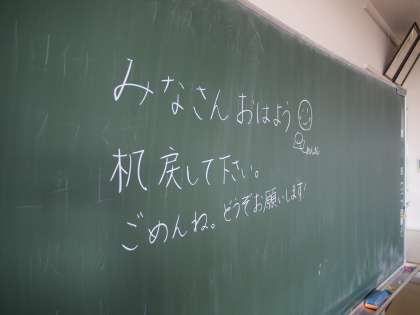 みなさん おはよう
机 戻して下さい。
ごめんね。どうぞお願いします!